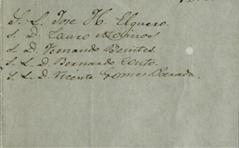 S. L. Jose H. Elguero.
S. D. Lauro
S. D. Fernando Benites.
S. L. D. Bernardo Couto.
S. L. D. Vicente Gomes Parada.